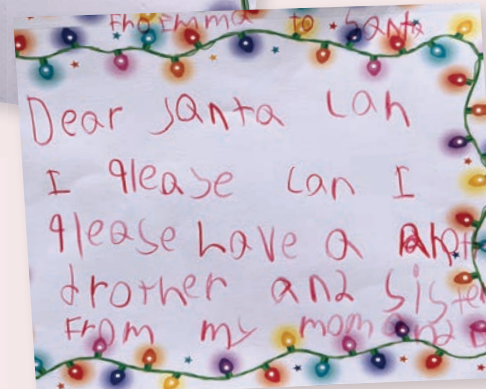 From Emma to Santa
Dear Santa can
I please can I
please have a
brother and sister
From my mom and